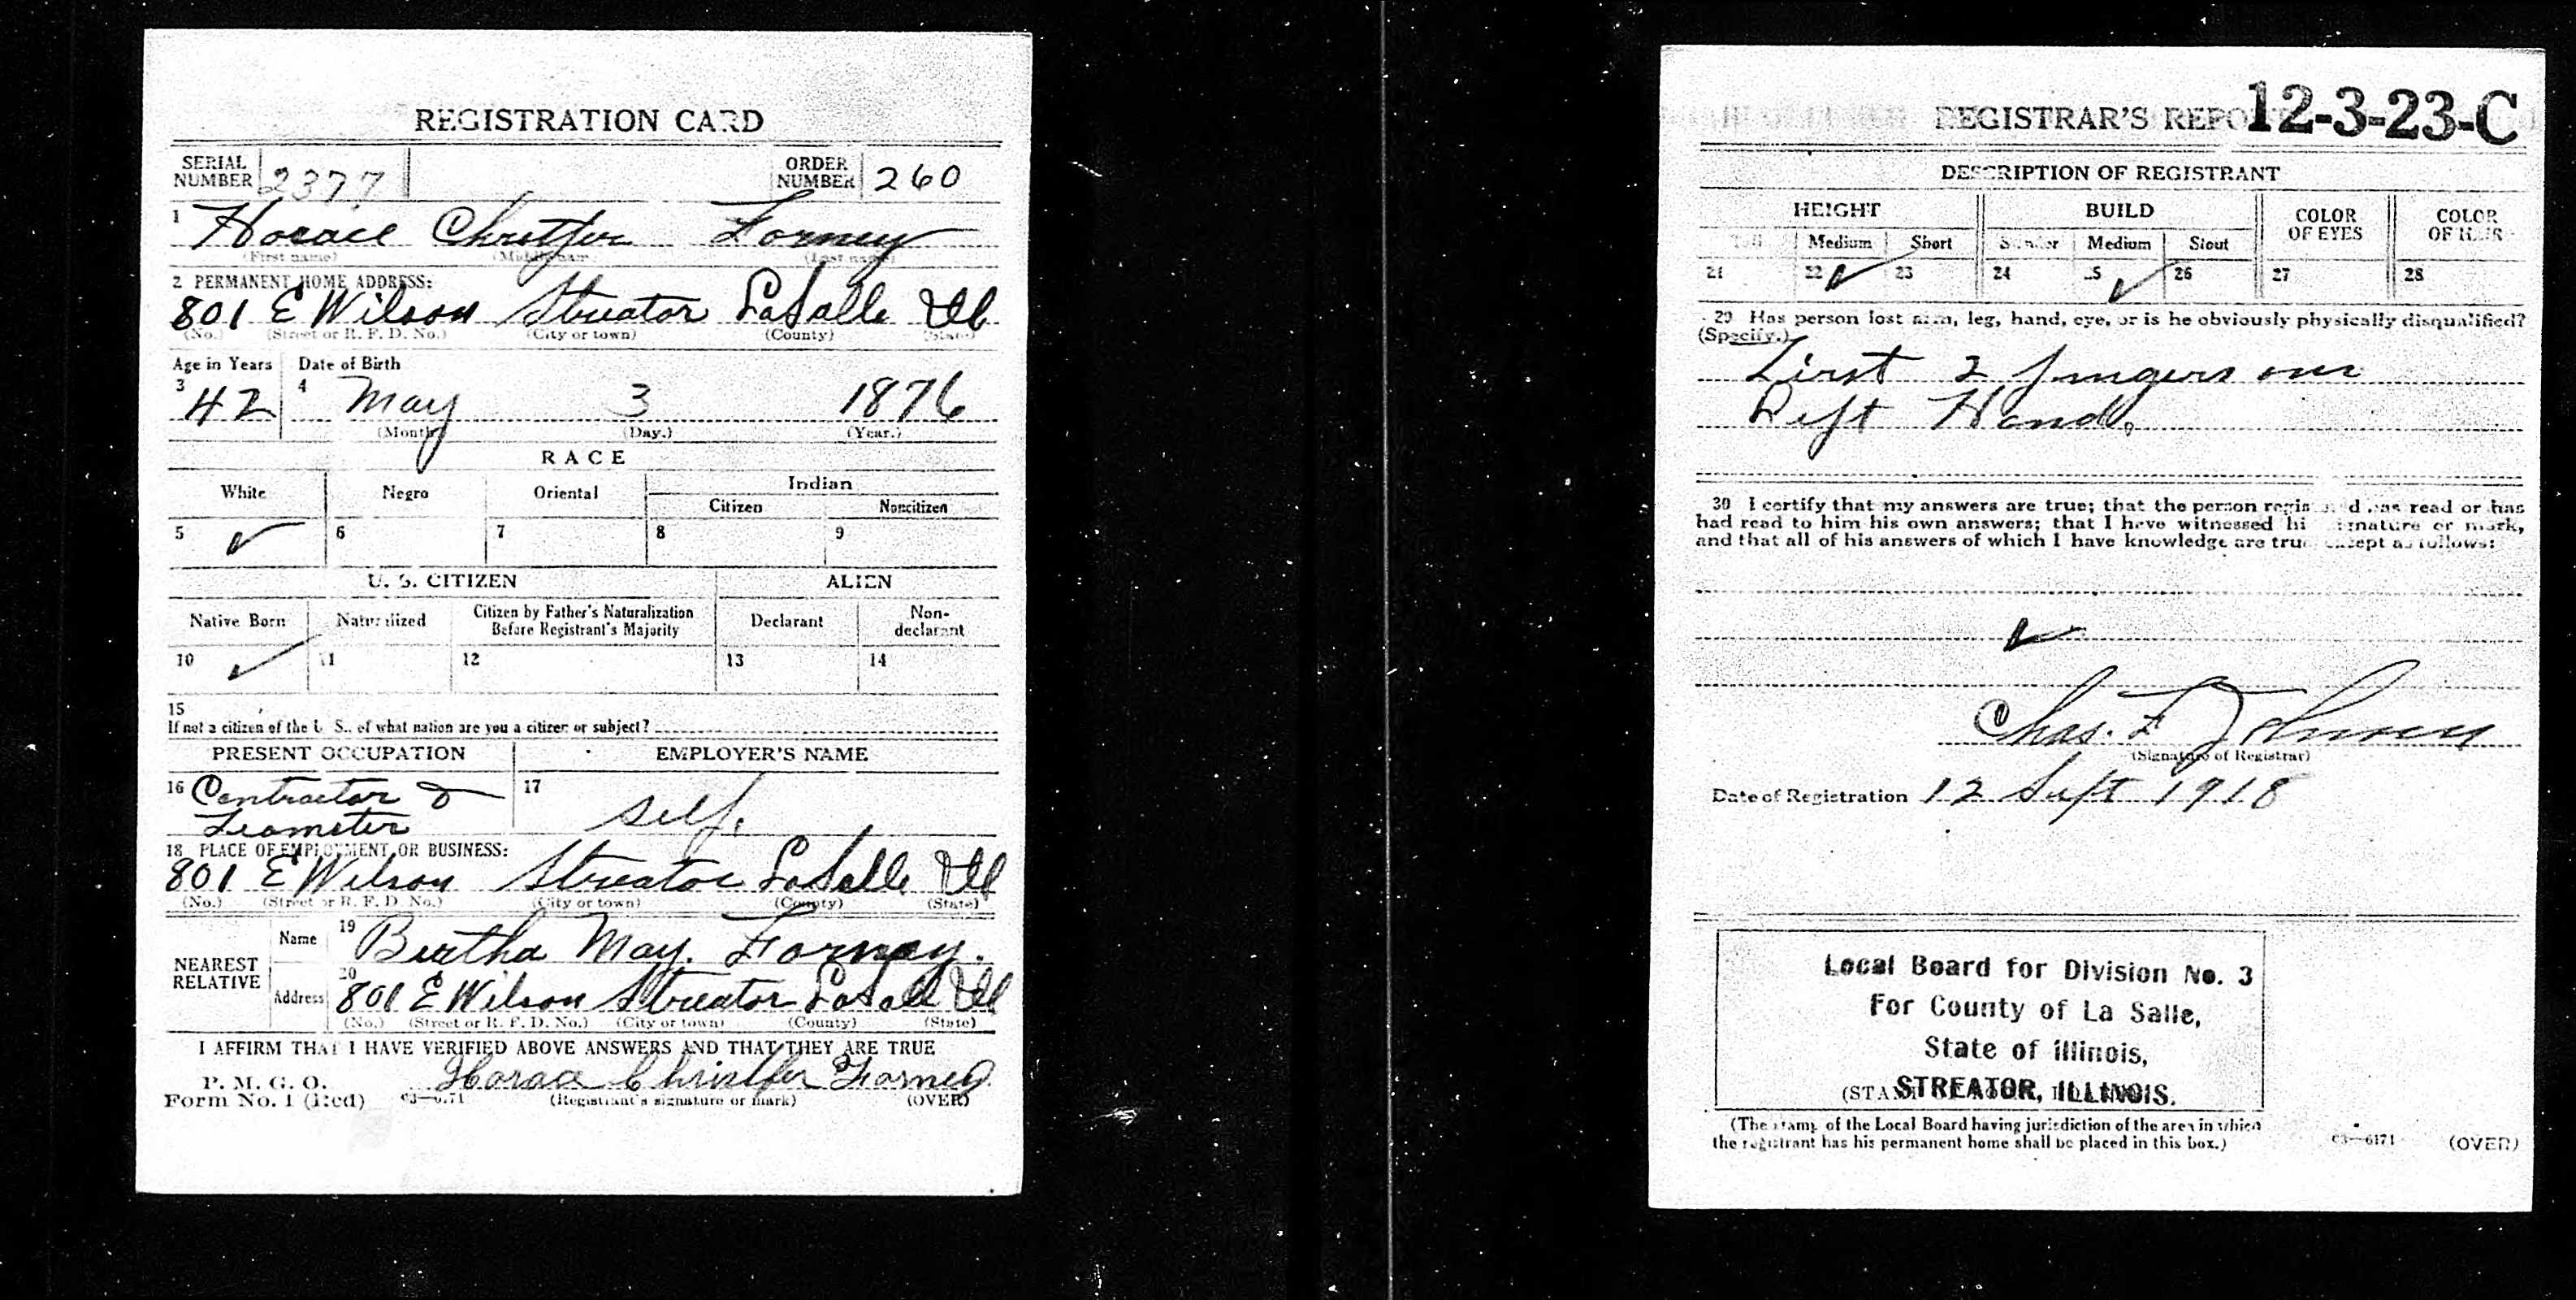 REGISTRATION CARD
SERIAL NUMBER 2377 ORDER NUMBER 260
1 Horace Christfer Forney
(First name) (Middle name) (Last name)
2 PERMANENT HOME ADDRESS:
801 E Wilson Streator LaSalle Ill
(No.) (Street or R. F. D. No.) (City or town) (County) (State)
Age in Years Date of Birth
3 42 4 May 3 1876
(Month) (Day.) (Year.)
RACE
White Negro Oriental Indian
Citizen Noncitizen
5 ✓ 6 7 8 9
U. S. CITIZEN ALIEN
Native Born Naturalized Citizen by Father's Naturalization Before Registrant's Majority Declarant Non-declarant
10 ✓ 11 12 13 14
15
If not a citizen of the U. S., of what nation are you a citizen or subject?
PRESENT OCCUPATION EMPLOYER'S NAME
16 Contractor & 17 self.
Teamster
18 PLACE OF EMPLOYMENT OR BUSINESS:
801 E Wilson Streator LaSalle Ill
(No.) (Street or R. F. D. No.) (City or town) (County) (State)
NEAREST RELATIVE
Name 19 Bertha May. Forney.
Address 20 801 E Wilson Streator LaSalle Ill
(No.) (Street or R. F. D. No.) (City or town) (County) (State)
I AFFIRM THAT I HAVE VERIFIED ABOVE ANSWERS AND THAT THEY ARE TRUE
P. M. G. O.
Form No. 1 (Red) 03—6171 Horace Christfer Forney
(Registrant's signature or mark) (OVER)
REGISTRAR'S REPO 12-3-23-C
DESCRIPTION OF REGISTRANT
HEIGHT BUILD COLOR OF EYES COLOR OF HAIR
Tall Medium Short Slender Medium Stout
21 22 ✓ 23 24 25 ✓ 26 27 28
29 Has person lost arm, leg, hand, eye, or is he obviously physically disqualified?
(Specify.)
First 2 fingers on
Left Hand.
30 I certify that my answers are true; that the person registered has read or has
had read to him his own answers; that I have witnessed his signature or mark,
and that all of his answers of which I have knowledge are true, except as follows:
✓
Chas. F Johnson
(Signature of Registrar)
Date of Registration 12 Sept 1918
Local Board for Division No. 3
For County of La Salle,
State of Illinois,
STREATOR, ILLINOIS.
(The stamp of the Local Board having jurisdiction of the area in which
the registrant has his permanent home shall be placed in this box.)
03—6171 (OVER)